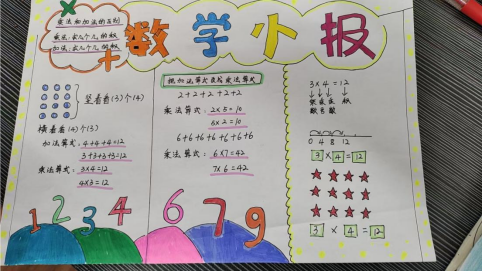 数学小报
乘法和加法的区别
乘法:求几个几的
加法:求几个几的
竖着看(3)个(4)
横着看(4)个(3)
加法算式:4+4+4=12
3+3+3+3=12
乘法算式:3×4=12
4×3=12
把加法算式改写乘法算式
2+2+2+2+2
乘法算式:2×5=10
5×2=10
6+6+6+6+6+6+6
乘法算式:6×7=42
7×6=42
3×4=12
0 4 8 12
3×4=12
3×4=12
1 2 3 4 6 7 9